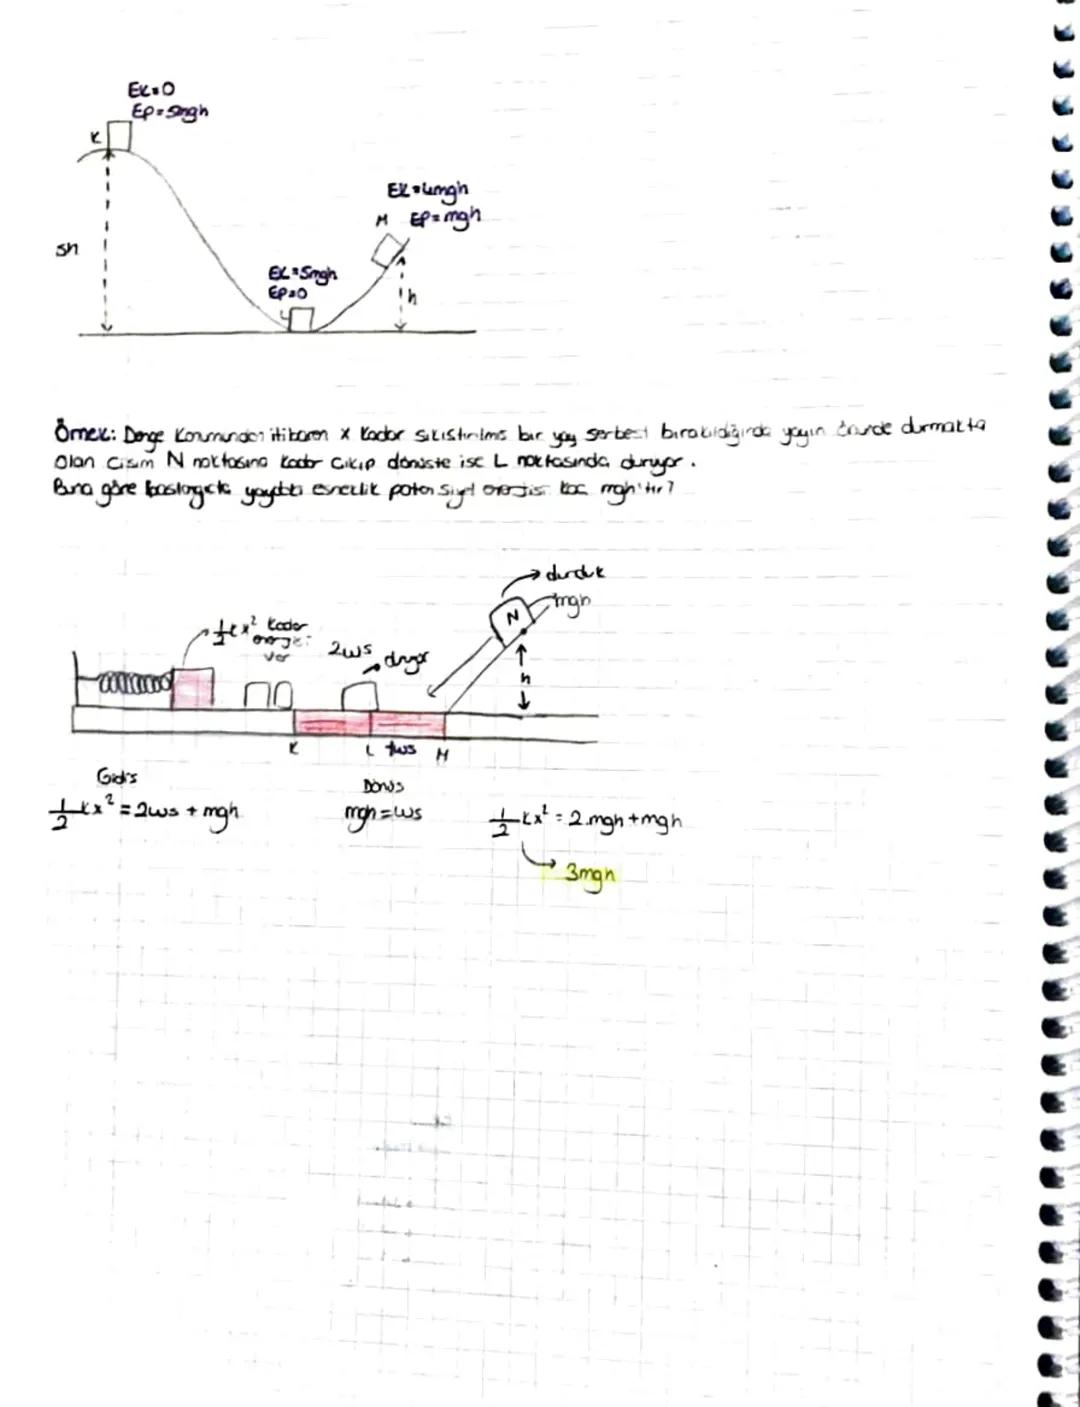 Ek=0
Ep=5mgh
K
5h
Ek=4mgh
M Ep=mgh
Ek=5mgh
Ep=0
L
h
Örnek: Denge konumundan itibaren x kadar sıkıştırılmış bir yay serbest bırakıldığında yayın önünde durmakta
olan cisim N noktasına kadar çıkıp dönüşte ise L noktasında duruyor.
Buna göre başlangıçta yaydaki esneklik potansiyel enerjisi kaç mgh'tır?
durduk
mgh
N
1/2 kx² kadar
enerjisi
var
2ws
duruyor
h
K L ws M
Gidiş
1/2 kx² = 2ws + mgh
Dönüş
mgh = ws
1/2 kx² = 2.mgh + mgh
3mgh